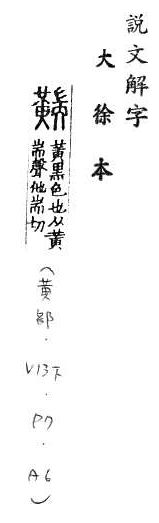 説文解字
大徐本
黃黑色也从黃
耑聲他耑切
（黃部．V13下．P7．A6）